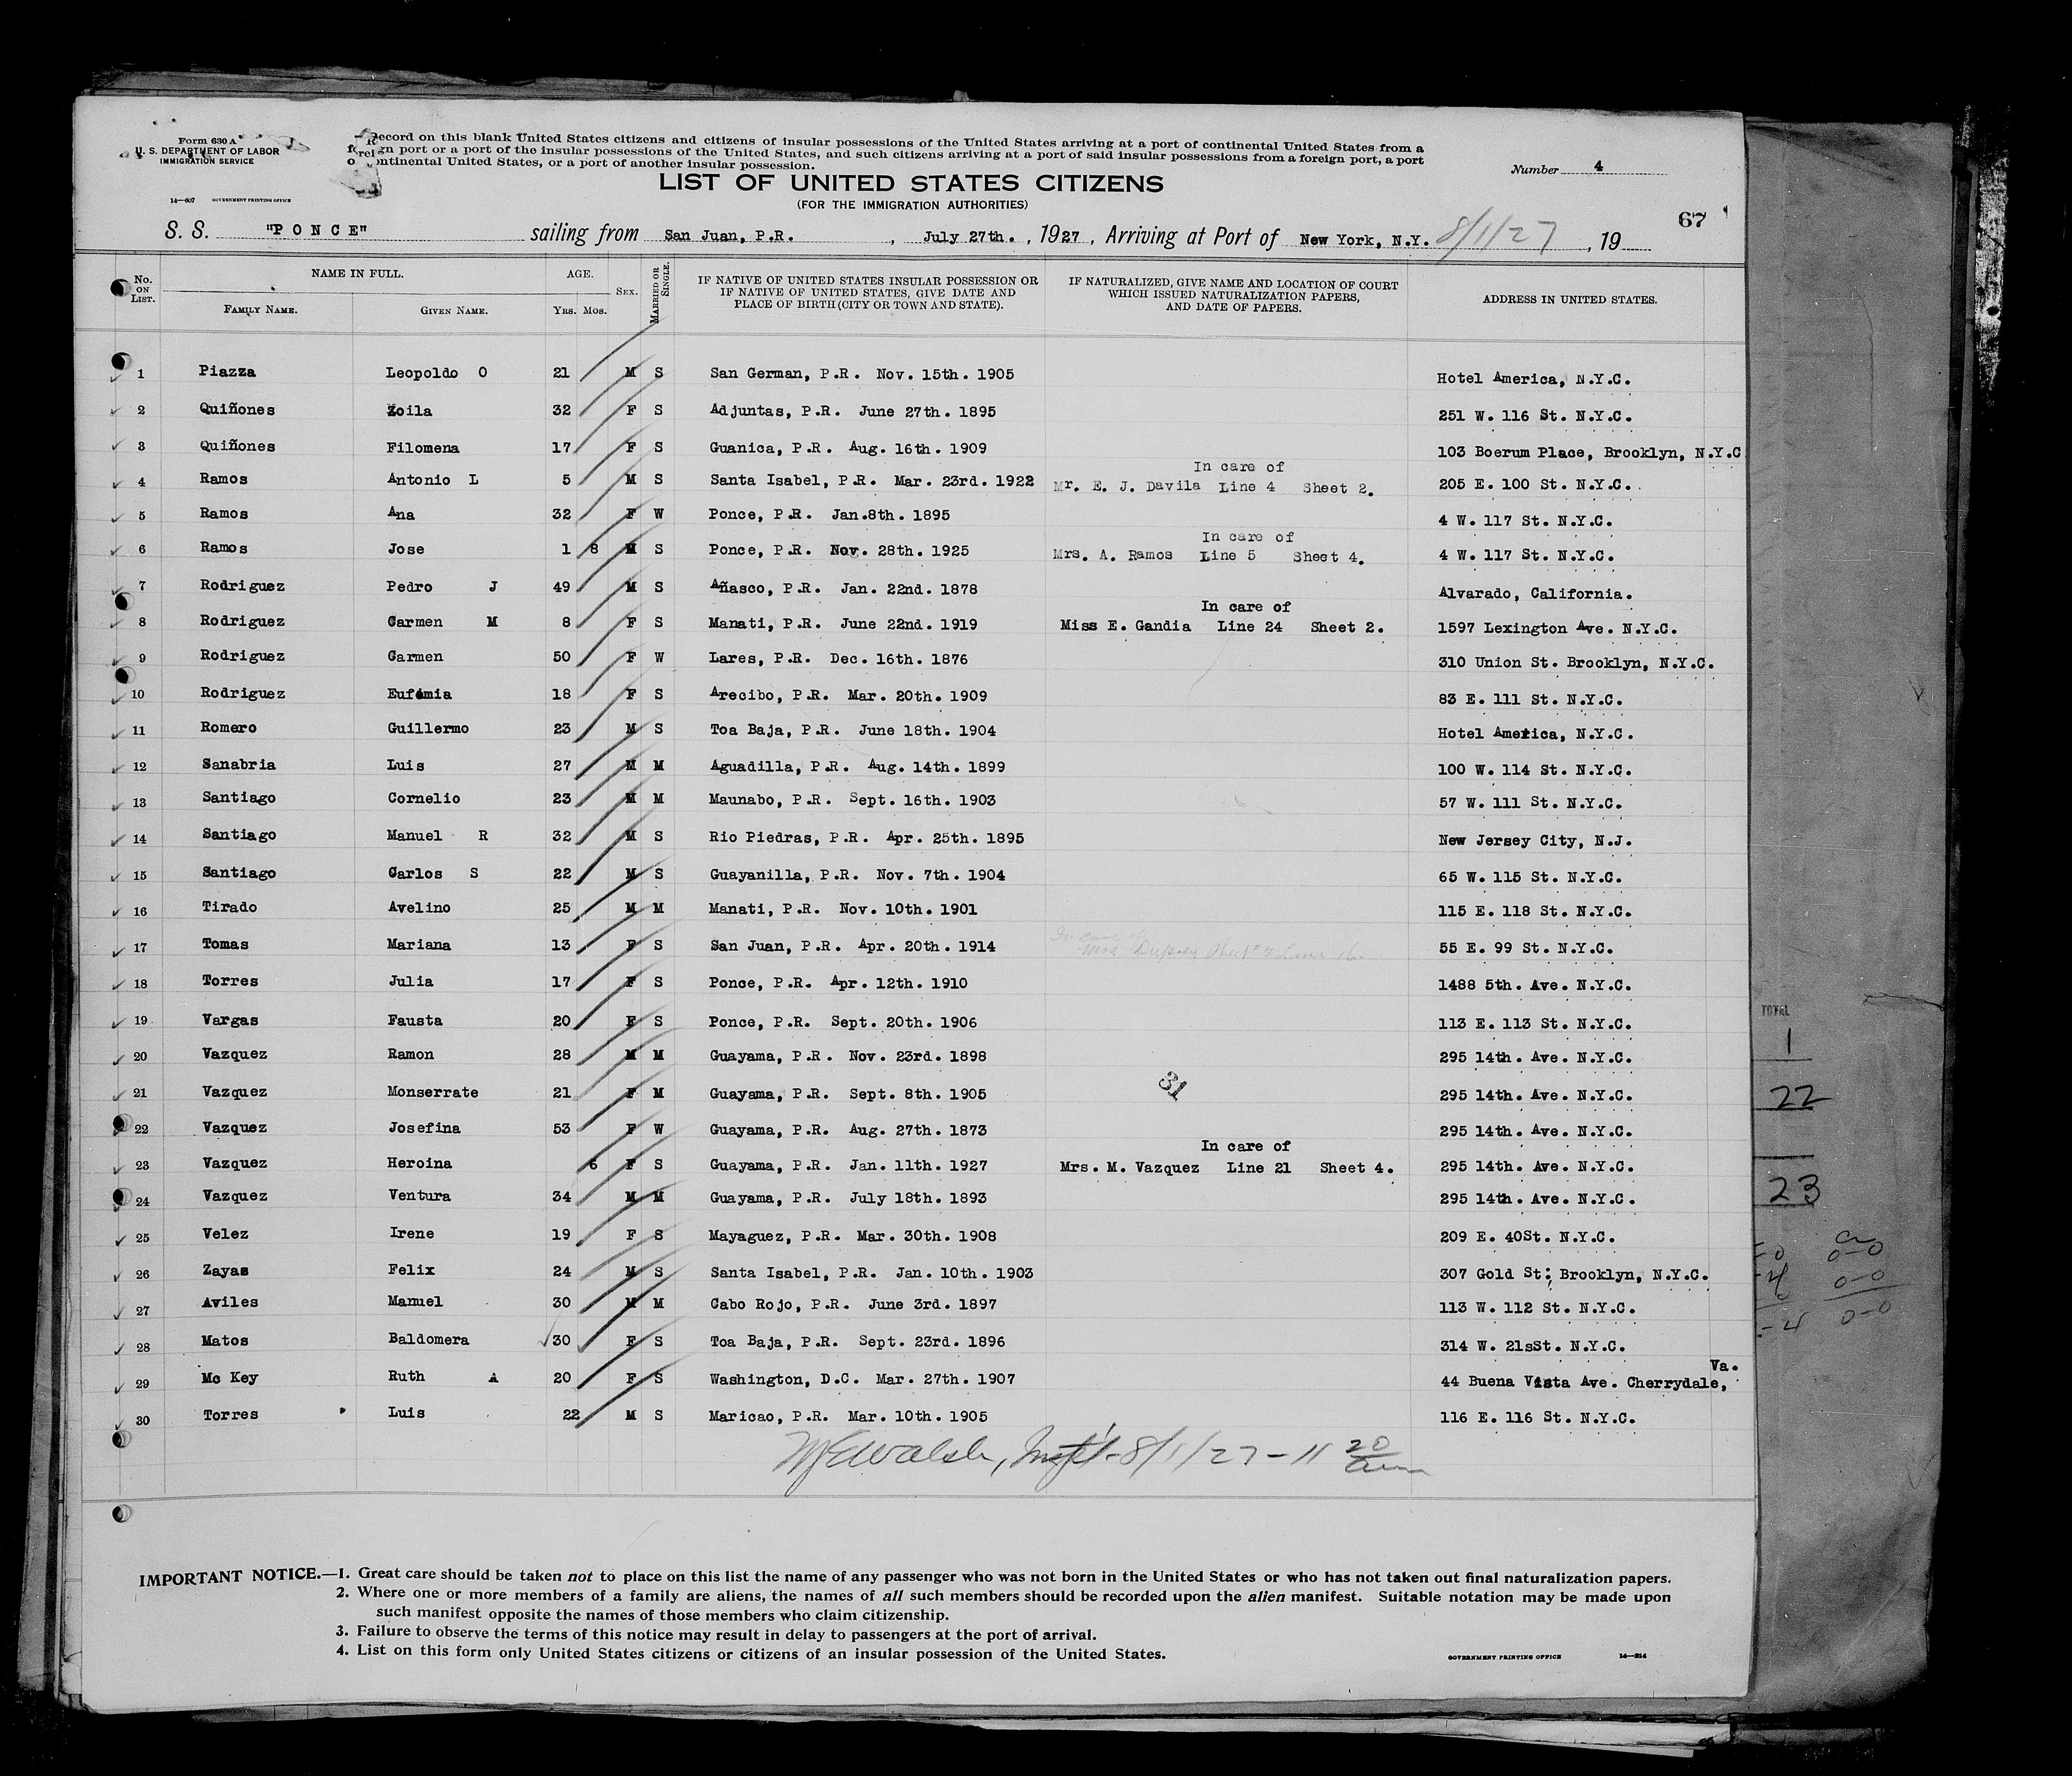 Form 630 A
U. S. DEPARTMENT OF LABOR
IMMIGRATION SERVICE
14—607 GOVERNMENT PRINTING OFFICE
Record on this blank United States citizens and citizens of insular possessions of the United States arriving at a port of continental United States from a
foreign port or a port of the insular possessions of the United States, and such citizens arriving at a port of said insular possessions from a foreign port, a port
of continental United States, or a port of another insular possession.
Number 4
LIST OF UNITED STATES CITIZENS
(FOR THE IMMIGRATION AUTHORITIES)
67
S. S. "PONCE" sailing from San Juan, P.R. , July 27th. , 1927 , Arriving at Port of New York, N.Y. 8/1/27 , 19
No. ON LIST. NAME IN FULL. FAMILY NAME. GIVEN NAME. AGE. YRS. MOS. SEX. MARRIED OR SINGLE. IF NATIVE OF UNITED STATES INSULAR POSSESSION OR IF NATIVE OF UNITED STATES, GIVE DATE AND PLACE OF BIRTH (CITY OR TOWN AND STATE). IF NATURALIZED, GIVE NAME AND LOCATION OF COURT WHICH ISSUED NATURALIZATION PAPERS, AND DATE OF PAPERS. ADDRESS IN UNITED STATES.
1 Piazza Leopoldo O 21 M S San German, P.R. Nov. 15th. 1905 Hotel America, N.Y.C.
2 Quiñones Zoila 32 F S Adjuntas, P.R. June 27th. 1895 251 W. 116 St. N.Y.C.
3 Quiñones Filomena 17 F S Guanica, P.R. Aug. 16th. 1909 103 Boerum Place, Brooklyn, N.Y.C
In care of
4 Ramos Antonio L 5 M S Santa Isabel, P.R. Mar. 23rd. 1922 Mr. E. J. Davila Line 4 Sheet 2. 205 E. 100 St. N.Y.C.
5 Ramos Ana 32 F W Ponce, P.R. Jan.8th. 1895 4 W. 117 St. N.Y.C.
In care of
6 Ramos Jose 1 8 M S Ponce, P.R. Nov. 28th. 1925 Mrs. A. Ramos Line 5 Sheet 4. 4 W. 117 St. N.Y.C.
7 Rodriguez Pedro J 49 M S Añasco, P.R. Jan. 22nd. 1878 Alvarado, California.
In care of
8 Rodriguez Carmen M 8 F S Manati, P.R. June 22nd. 1919 Miss E. Gandia Line 24 Sheet 2. 1597 Lexington Ave. N.Y.C.
9 Rodriguez Carmen 50 F W Lares, P.R. Dec. 16th. 1876 310 Union St. Brooklyn, N.Y.C.
10 Rodriguez Eufemia 18 F S Arecibo, P.R. Mar. 20th. 1909 83 E. 111 St. N.Y.C.
11 Romero Guillermo 23 M S Toa Baja, P.R. June 18th. 1904 Hotel America, N.Y.C.
12 Sanabria Luis 27 M M Aguadilla, P.R. Aug. 14th. 1899 100 W. 114 St. N.Y.C.
13 Santiago Cornelio 23 M M Maunabo, P.R. Sept. 16th. 1903 57 W. 111 St. N.Y.C.
14 Santiago Manuel R 32 M S Rio Piedras, P.R. Apr. 25th. 1895 New Jersey City, N.J.
15 Santiago Carlos S 22 M S Guayanilla, P.R. Nov. 7th. 1904 65 W. 115 St. N.Y.C.
16 Tirado Avelino 25 M M Manati, P.R. Nov. 10th. 1901 115 E. 118 St. N.Y.C.
In care of
17 Tomas Mariana 13 F S San Juan, P.R. Apr. 20th. 1914 Mrs 55 E. 99 St. N.Y.C.
18 Torres Julia 17 F S Ponce, P.R. Apr. 12th. 1910 1488 5th. Ave. N.Y.C.
19 Vargas Fausta 20 F S Ponce, P.R. Sept. 20th. 1906 113 E. 113 St. N.Y.C.
20 Vazquez Ramon 28 M M Guayama, P.R. Nov. 23rd. 1898 295 14th. Ave. N.Y.C.
31
21 Vazquez Monserrate 21 F M Guayama, P.R. Sept. 8th. 1905 295 14th. Ave. N.Y.C.
22 Vazquez Josefina 53 F W Guayama, P.R. Aug. 27th. 1873 295 14th. Ave. N.Y.C.
In care of
23 Vazquez Heroina 6 F S Guayama, P.R. Jan. 11th. 1927 Mrs. M. Vazquez Line 21 Sheet 4. 295 14th. Ave. N.Y.C.
24 Vazquez Ventura 34 M M Guayama, P.R. July 18th. 1893 295 14th. Ave. N.Y.C.
25 Velez Irene 19 F S Mayaguez, P.R. Mar. 30th. 1908 209 E. 40St. N.Y.C.
26 Zayas Felix 24 M S Santa Isabel, P.R. Jan. 10th. 1903 307 Gold St: Brooklyn, N.Y.C.
27 Aviles Manuel 30 M M Cabo Rojo, P.R. June 3rd. 1897 113 W. 112 St. N.Y.C.
28 Matos Baldomera 30 F S Toa Baja, P.R. Sept. 23rd. 1896 314 W. 21sSt. N.Y.C.
Va.
29 Mc Key Ruth A 20 F S Washington, D.C. Mar. 27th. 1907 44 Buena Vista Ave. Cherrydale,
30 Torres Luis 22 M S Maricao, P.R. Mar. 10th. 1905 116 E. 116 St. N.Y.C.
Walsh, 8/1/27 - 11 20 am
IMPORTANT NOTICE.—1. Great care should be taken not to place on this list the name of any passenger who was not born in the United States or who has not taken out final naturalization papers.
2. Where one or more members of a family are aliens, the names of all such members should be recorded upon the alien manifest. Suitable notation may be made upon
such manifest opposite the names of those members who claim citizenship.
3. Failure to observe the terms of this notice may result in delay to passengers at the port of arrival.
4. List on this form only United States citizens or citizens of an insular possession of the United States.
GOVERNMENT PRINTING OFFICE 14—214
TOTAL
1
22
23
0-0
0-0
0-0